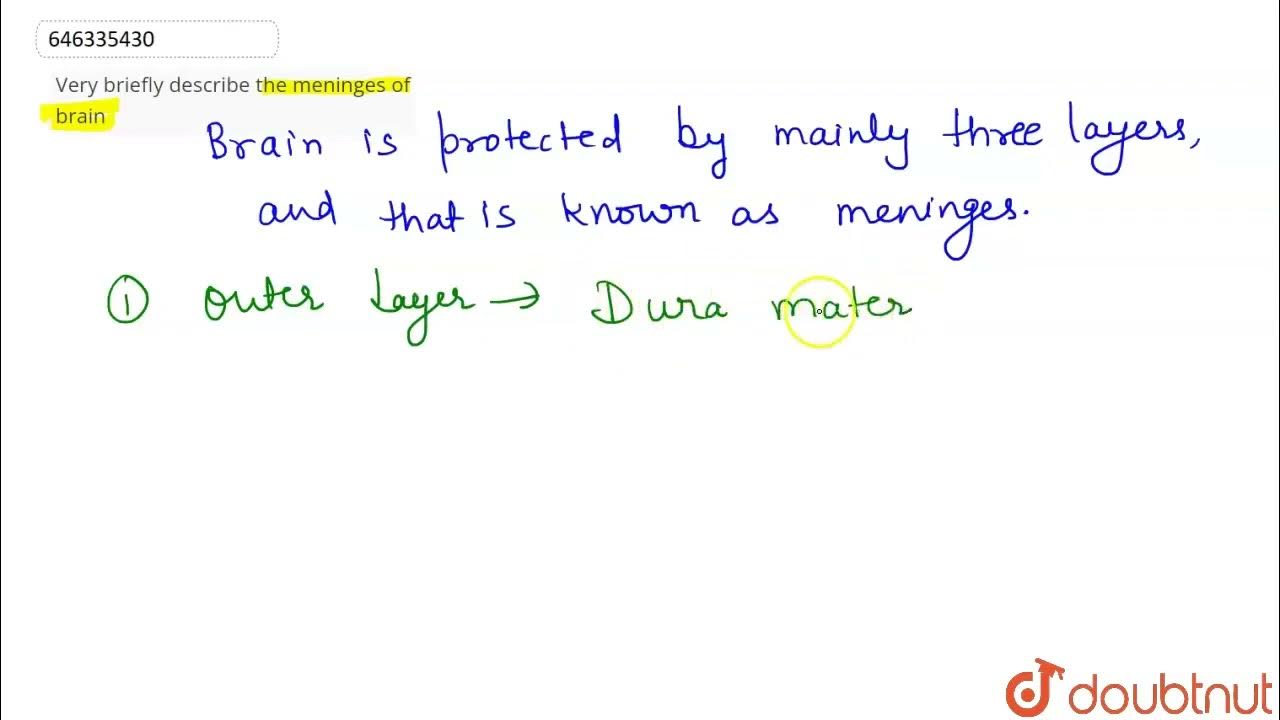 646335430
Very briefly describe the meninges of
brain
Brain is protected by mainly three layers,
and that is known as meninges.
① Outer Layer → Dura mater
doubtnut